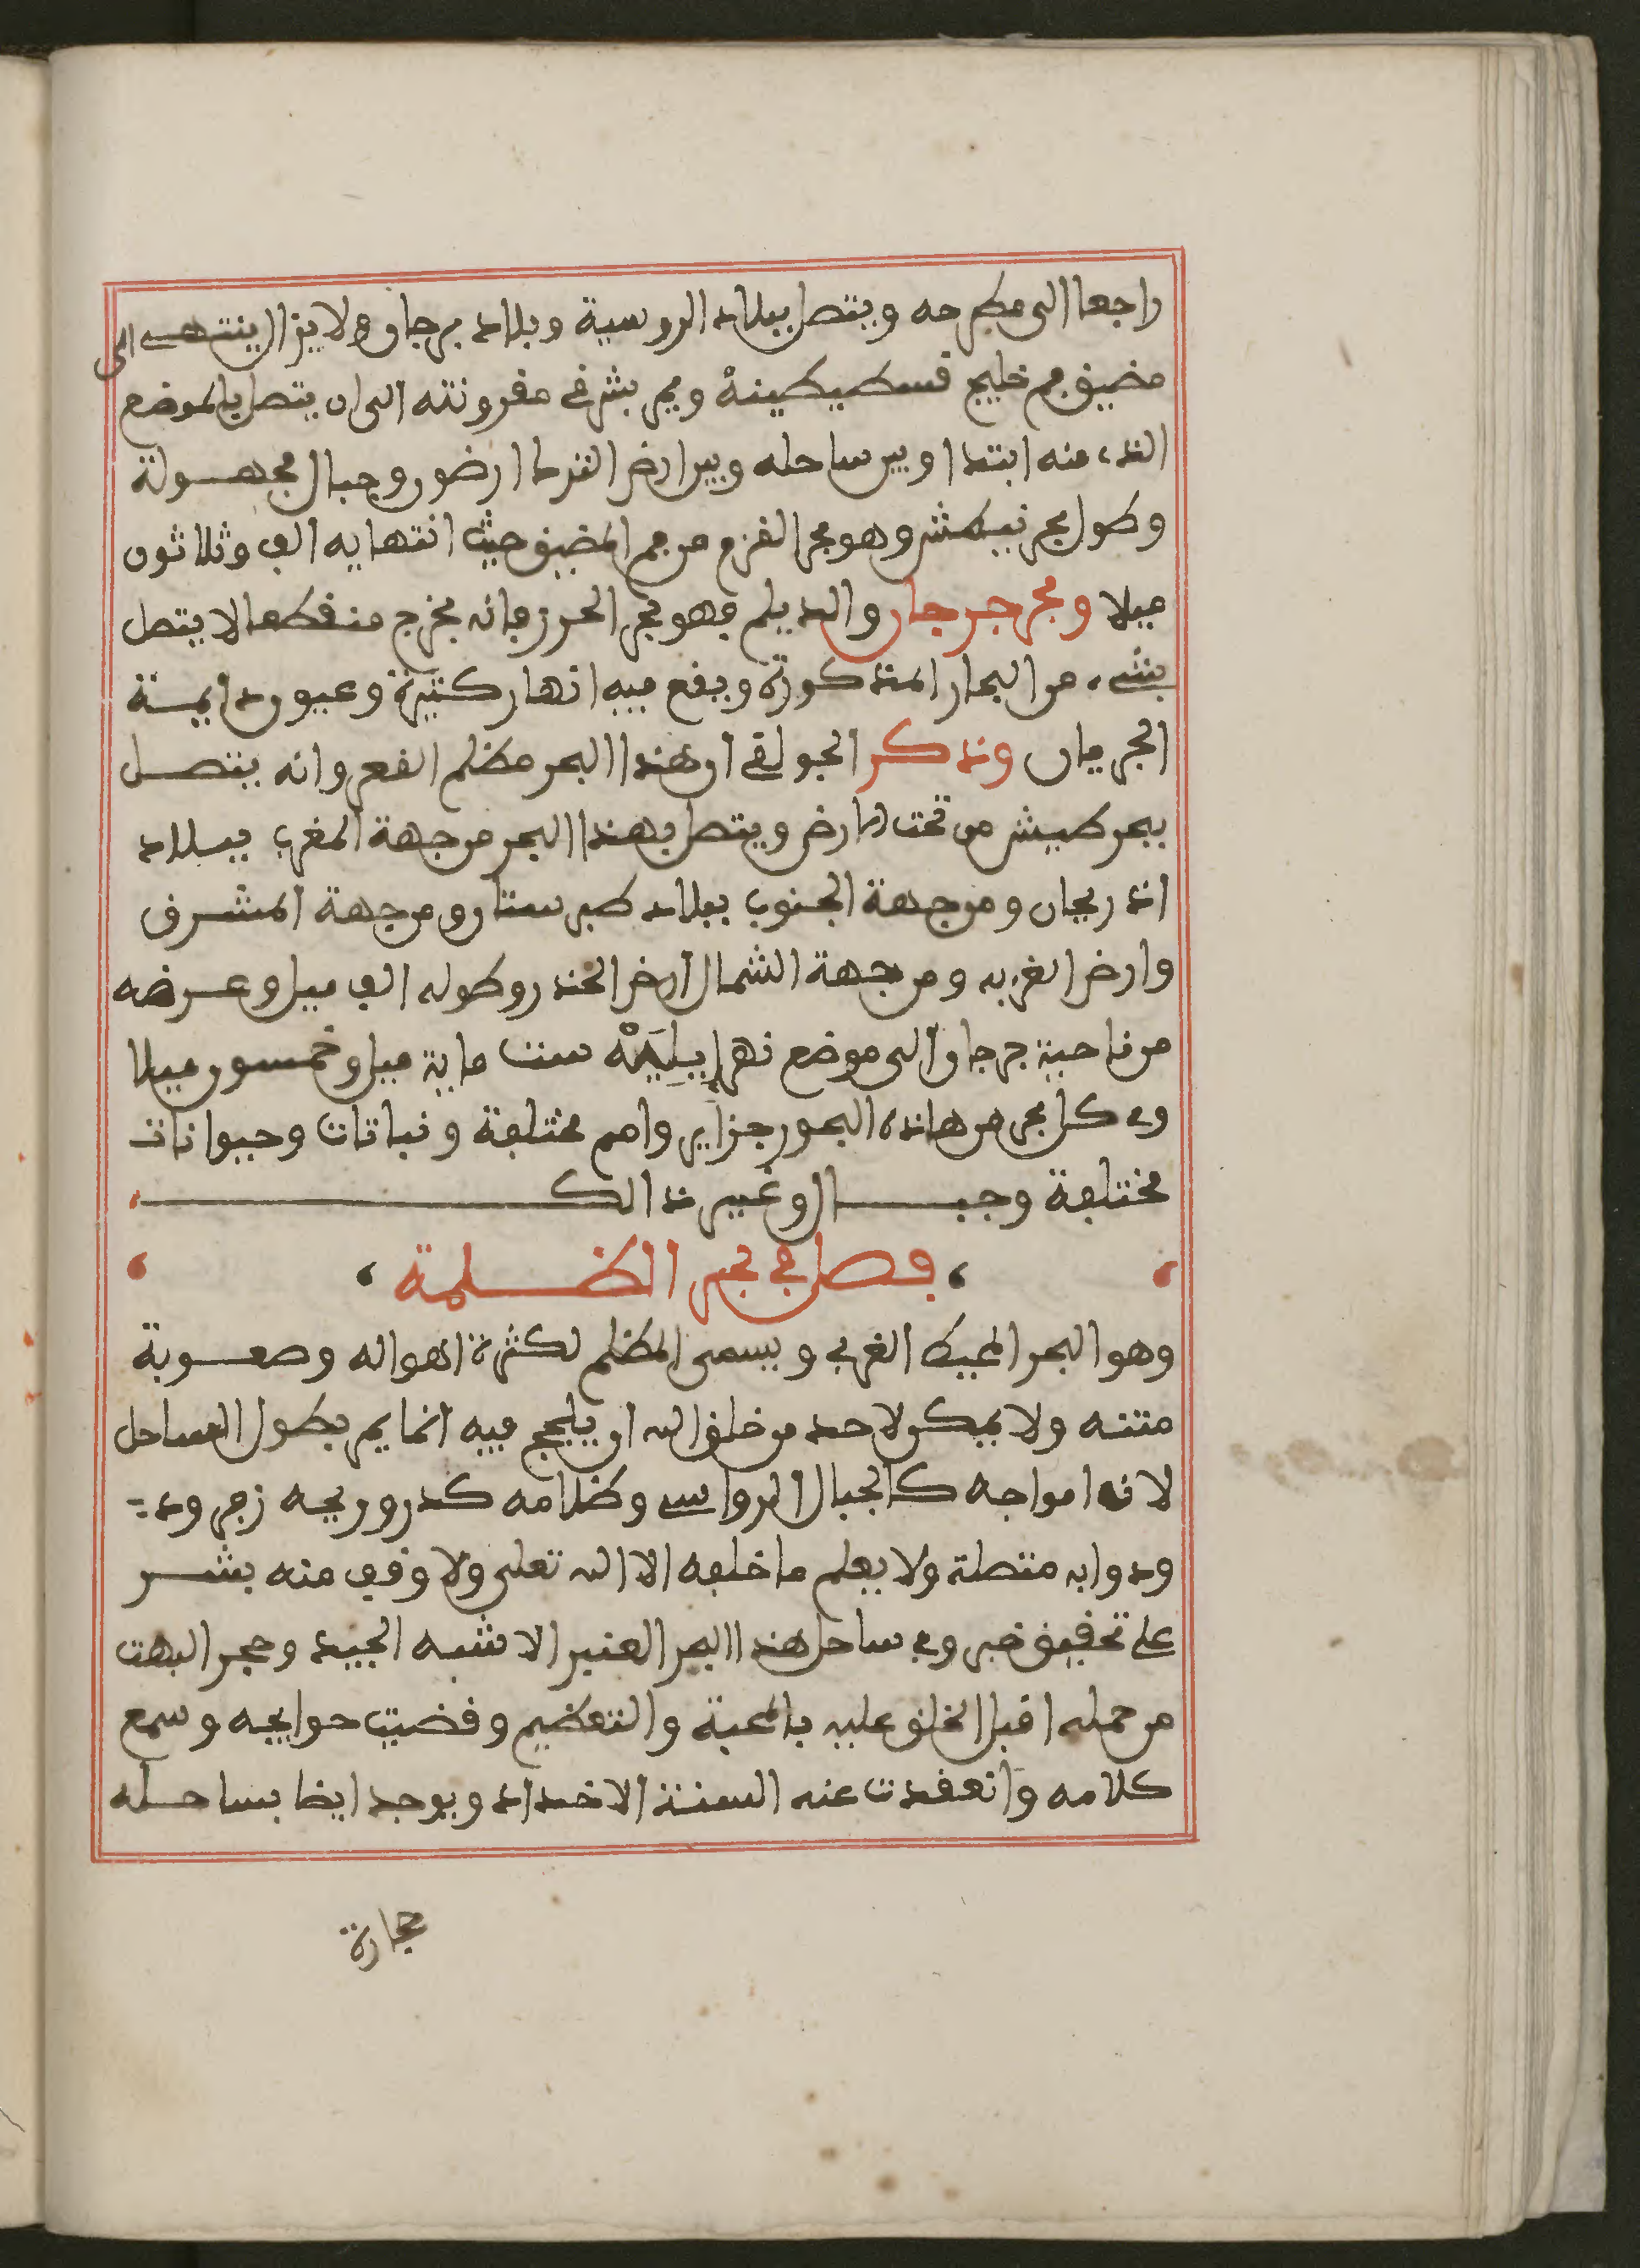 راجعا الى مطرحه ويتصل ببلاد الروسية وبلاد برجان ولا يزال ينتهي الى
مضيق فم خليج قسطيطينة ويمر بشرفي مقرونته الى ان يتصل بالموضع
الذي منه ابتدا وبين ساحله وبين ارض الترك ارضون وجبال مجهولة
وطول بحر نيطش وهو بحر القرم من فم المضيق حيث انتهايه الف وثلاثون
ميلا وبحر جرجان والديلم فهو بحر الخزر فإنه يخرج منقطعا لا يتصل
بشيء من البحار المذكورة ويقع فيه انهار كثيرة وعيون دايمة
الجريان وذكر الجوالقي ان هذا البحر مظلم القعر وانه يتصل
ببحر طيش من تحت الارض ويتصل بهذا البحر من جهة المغرب ببلاد
اذريجان ومن جهة الجنوب ببلاد طبرستان ومن جهة المشرق
وارض الغزيه ومن جهة الشمال ارض الخذر وطوله الف ميل وعرضه
من ناحية جرجان الى موضع نهر ايلية ست ماية ميل وخمسون ميلا
وفي كل بحر من هاذه البحور جزاير وامم مختلفة ونباتات وحيوانات
مختلفة وجبال وغير ذالك
فصل في بحر الظلمة
وهو البحر المحيط الغربي ويسمى المظلم لكثرة اهواله وصعوبة
متنه ولا يمكن لاحد من خلق الله ان يلجج فيه انما يمر بطول الساحل
لانه امواجه كالجبال الرواسي وظلامه كدر وريحه زجر ود
ودوابه متصلة ولا يعلم ما خلفه الا الله تعلى ولا وقف منه بشر
على تحقيق خبر وفي ساحل هذا البحر العنبر الاشبه الجيد وحجر البهت
من حمله اقبل الخلق عليه بالمحبة والتعظيم وقضيت حوايجه وسمع
كلامه وانعقدت عنه السنة الاضداد ويوجد ايضا بساحله
حجارة